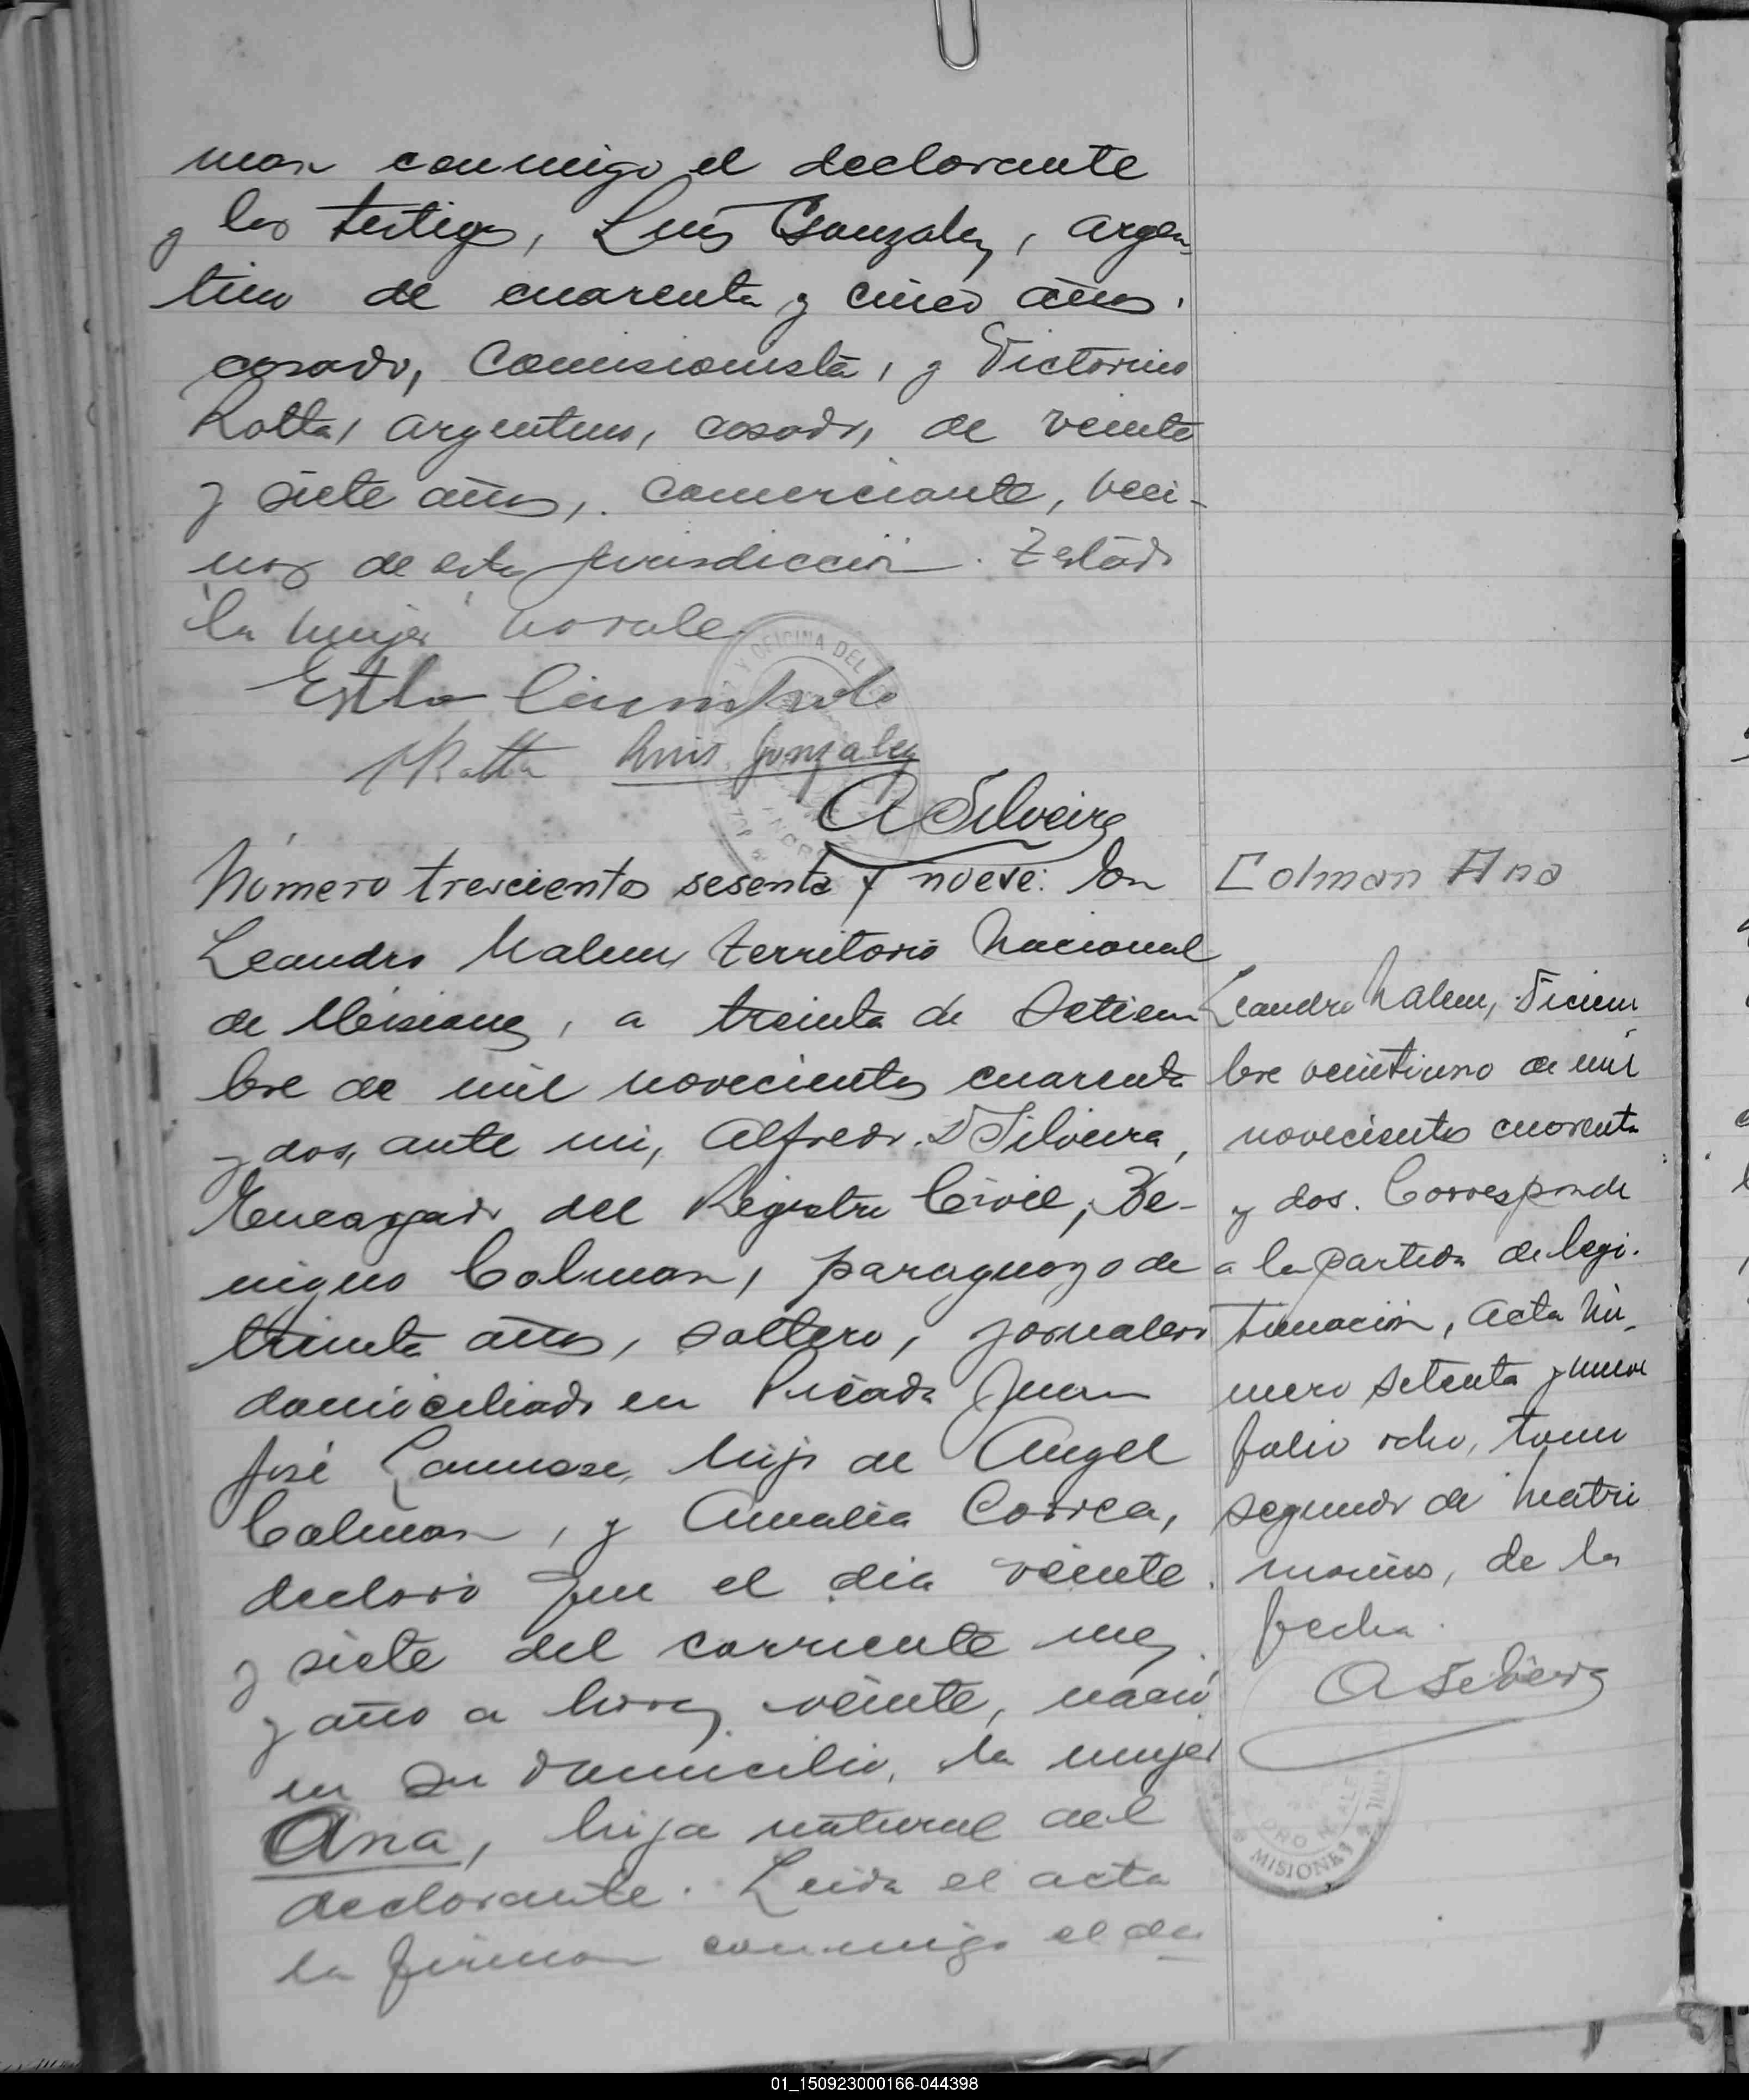 man conmigo el declarante
y los testigos, Luis Gonzalez, argen
tino de cuarenta y cinco años.
casado, Comisionista, y Victorino
Rotta, argentino, casado, de veinte
y siete años, comerciante, veci-
nos de esta jurisdicción. Testado
"la mujer" no vale.
Luis Gonzalez
A Silveira
Número trescientos sesenta y nueve: En
Leandro Nalem, territorio Nacional
de Misiones, a treinta de Setiem
bre de mil novecientos cuarenta
y dos, ante mi, Alfredo D Silveira,
Encargado del Registro Civil, Be-
nigno Colman, paraguayo de
treinta años, soltero, jornalero
domiciliado en Picada Juan
José Lanusse, hijo de Angel
Colman, y Amalia Correa,
declaró que el dia veinte
y siete del corriente mes
y año a horas veinte, nació
en su domicilio, la mujer
Ana, hija natural del
declarante. Leida el acta
la firman conmigo el de
Colman Ana
Leandro Nalem, Diciem
bre veintiuno de mil
novecientos cuarenta
y dos. Corresponde
a la partida de legi-
timación, acta nú-
mero setenta y nueve
folio ocho, tomo
segundo de matri
monios, de la
fecha.
A Silveira
MISIONES
01_150923000166-044398